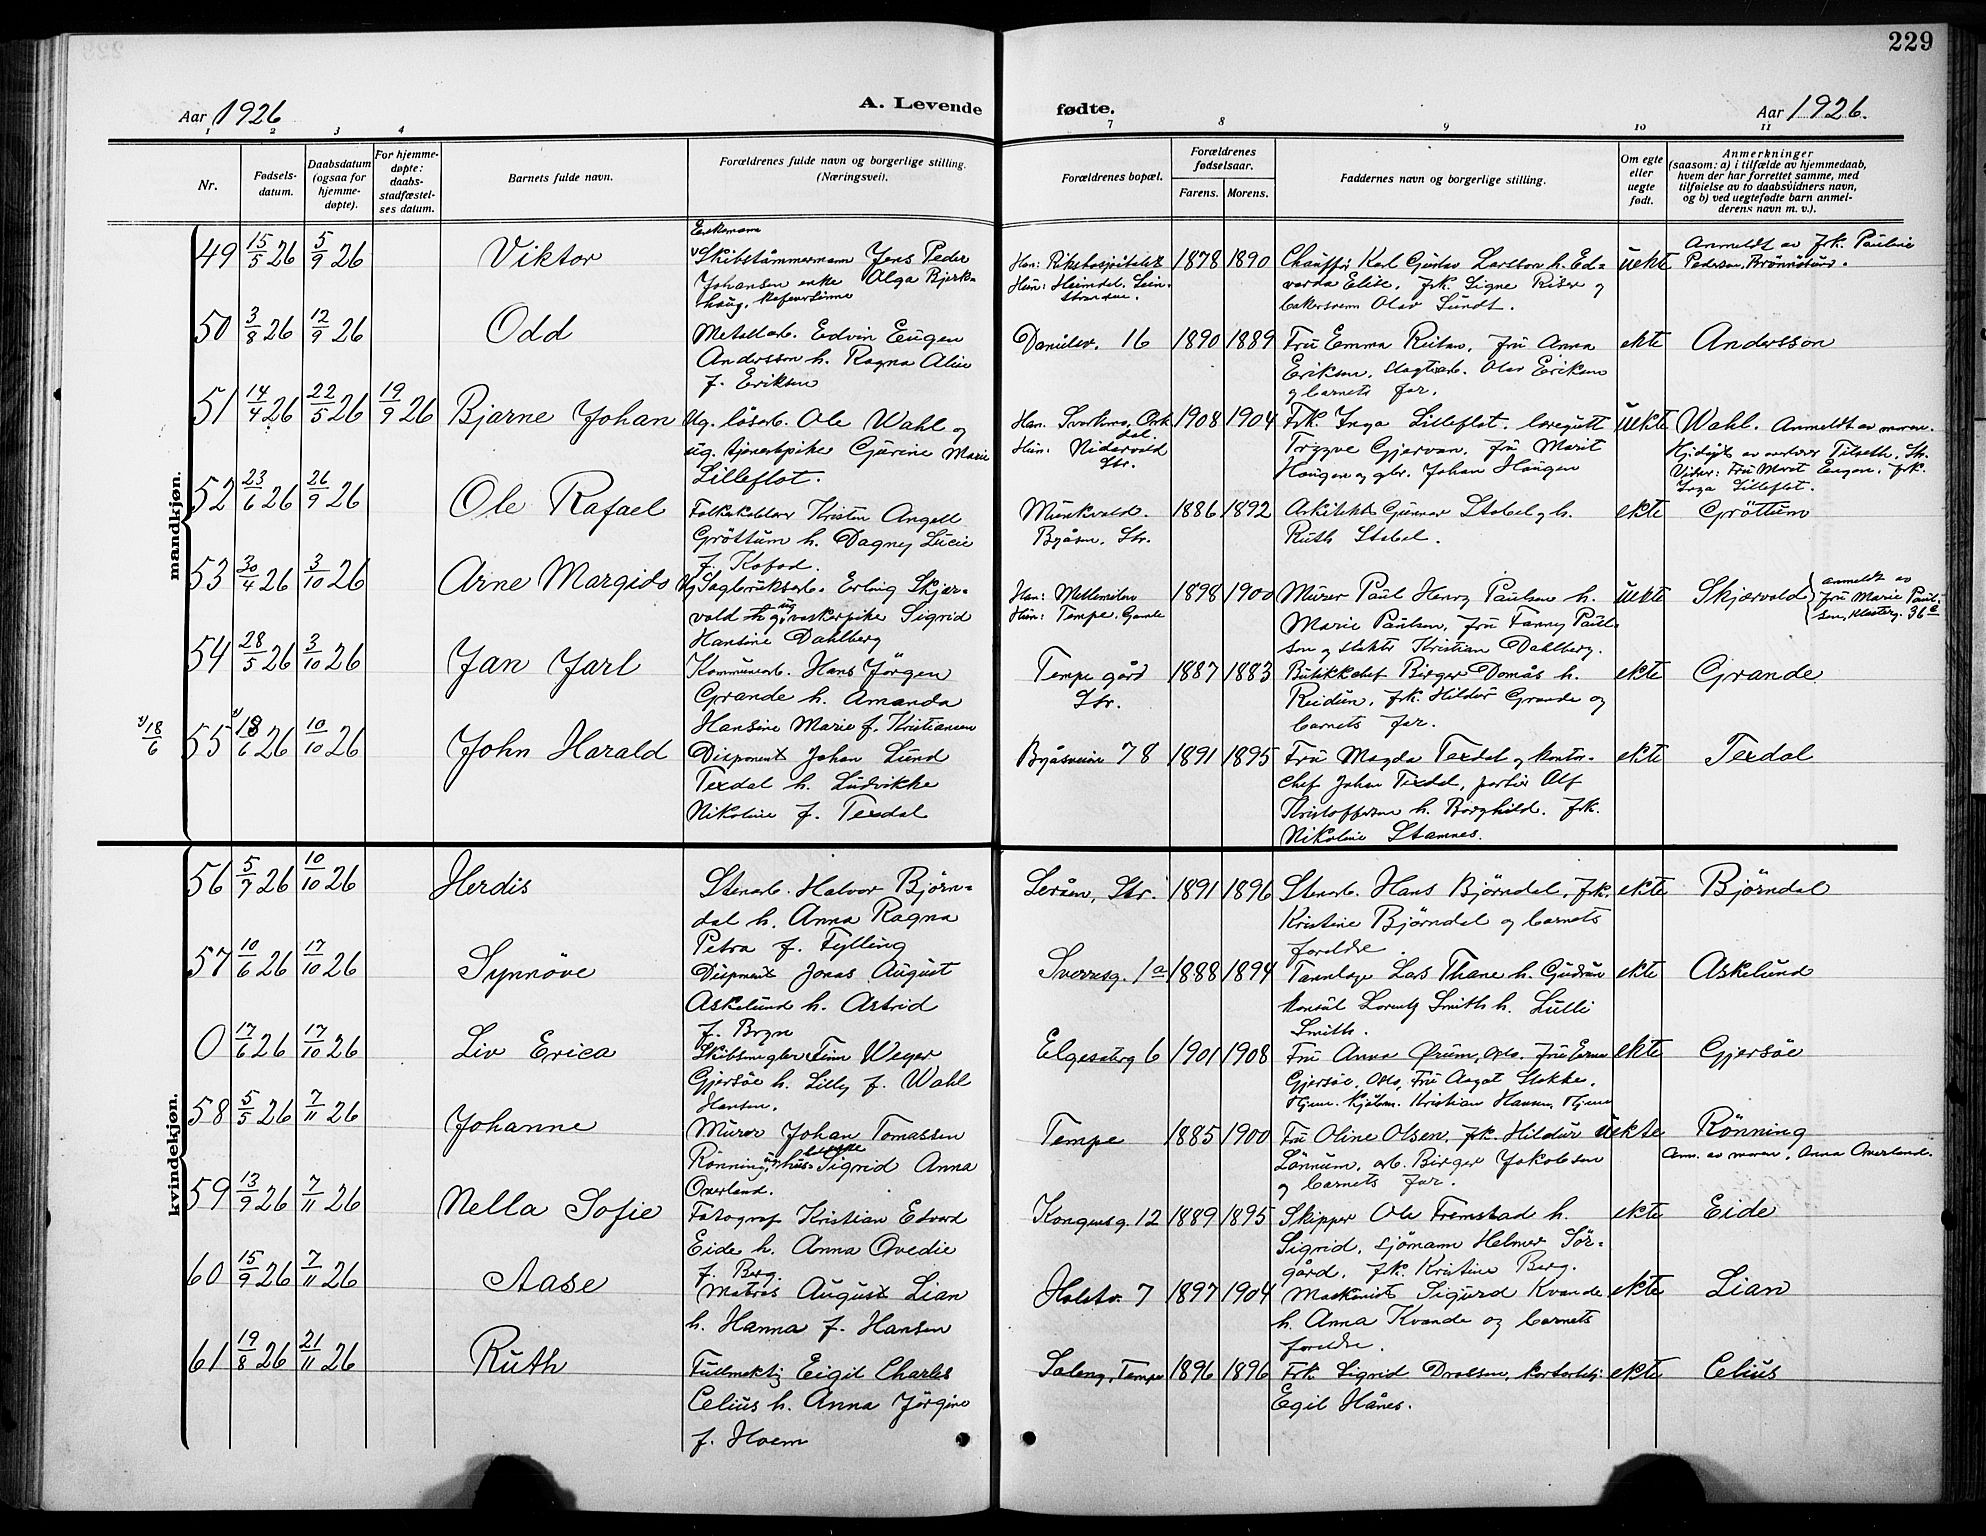 229
Aar 1926
A. Levende fødte.
Aar 1926.
1 2 3 4 7 8 9 10 11
Nr.
Fødsels-
datum.
Daabsdatum
(ogsaa for
hjemme-
døpte).
For hjemme-
døpte:
daabs-
stadfæstel-
ses datum.
Barnets fulde navn.
Forældrenes fulde navn og borgerlige stilling.
(Næringsvei).
Forældrenes bopæl.
Forældrenes
fødselsaar.
Farens. Morens.
Faddernes navn og borgerlige stilling.
Om egte
eller
uegte
født.
Anmerkninger
(saasom: a) i tilfælde av hjemmedaab,
hvem der har forrettet samme, med
tilføielse av to daabsvidners navn,
og b) ved uegtefødte barn anmel-
derens navn m. v.).
mandkjøn.
49 15/5 26 5/9 26 Viktor
Enkemann
Skibstömmermann Jens Peder
Johansen enke Alga Bjerk-
haug,
Han: Rikshospitalet
Hun: Heimdal. Lein-
stranden.
1878 1890
Chaufför Karl Gustav Larsson h. Ed-
varda Elise, frk. Signe Riser og
bakersvenn Olav Sundt.
uekte
Anmeldt av frk. Pauline
Pedersen, Brönnösund.
50 3/8 26 12/9 26 Odd
Metallarb. Edvin Eugen
Andersson h. Ragna Alise
f. Eriksen
Danielsv. 16 1890 1889
Fru Emma Reitan, fru Anna
Eriksen, slagterb. Olav Eriksen
og barnets far.
ekte Andersson
51 14/4 26 22/5 26 19/9 26 Bjarne Johan
Ug. lösarb. Ole Wahl og
ug. tjenestpike Gurine Marie
Lilleflot.
Han. Svorkmo, Ork
dal.
Hun: Nidarvold
Str.
1908 1904
Frk. Inga Lilleflot, læregutt
Trygve Gjervan, fru Marit
Haugen og gbr. Johan Haugen
uekte
Wahl. Anmeldt av moren.
Hj.döpt av overlærer Tilseth, Str.
Vidner: Fru Marit Eugen, frk.
Inga Lilleflot.
52 23/6 26 26/9 26 Ole Rafael
Kristen Angell
Gröttum h. Dagny Lucie
f. Kofod.
Munkvold.
Byåsen, Str.
1886 1892
Arkitekt Gunnar Stabel og h.
Ruth Stabel.
ekte Gröttum
53 30/4 26 3/10 26 Arne Margido
Ug Sagbruksarb. Erling Skjær-
vold h og ug vaskerpike Sigrid
Hansine Dahlberg
Han: Mellemilen
Hun: Tempe, Gamle
1898 1900
Murer Paul Henry Paulsen h.
Marie Paulsen, fru Fanny Paul-
sen og slakter Kristian Dahlberg.
uekte Skjærvold
anmeldt av
fru Marie Paul-
sen, Klosterg. 36a
54 28/5 26 3/10 26 Jan Jarl
Kommunearb. Hans Jörgen
Grande h. Amanda
Hansine Marie f. Kristiansen
Tempe gård
Str.
1887 1883
Butikkchef Birger Domås h.
Reidun, frk. Hildur Grande og
barnets far.
ekte Grande
1/ 18/6 55 1/ 18/6 26 10/10 26 John Harald
Disponent Johan Lund
Texdal h. Ludvikke
Nikoline f. Texdal
Byåsveien 78 1891 1895
Fru Magda Texdal og kontor-
chef Johan Texdal, portier Alf
Kristoffersen h. Borghild, frk.
Nikoline Stamnes.
ekte Texdal
kvindekjøn.
56 5/7 26 10/10 26 Herdis
Stenarb. Halvor Björn-
dal h. Anna Ragna
Petra f. Fylling
Leråen, Str. 1891 1896
Stenarb. Hans Björndal, frk.
Kristine Björndal og barnets
foreldre.
ekte Björndal
57 10/6 26 17/10 26 Synnöve
Disponent Jonas August
Askelund h. Astrid
f. Bryn
Sverresg. 1a 1888 1894
Tannlæge Lars Thane h. Gudrun
konsul Lorentz Smith h. Lulli
Smith.
ekte Askelund
0 17/6 26 17/10 26 Liv Erica
Skibsmegler Finn Weyer
Gjersöe h. Lilly f. Wahl
Hansen.
Elgesæterg 6 1901 1908
Fru Anna Ørum, Oslo. Fru Erna
Gjersöe, Oslo, Fru Aagot Stokke,
Thjem. kjöbm. Kristian Hansen, Thjem
ekte Gjersöe
58 5/5 26 7/11 26 Johanne
Murer Johan Tomassen
Rönning, ug hus- Sigrid Anna
Overland.
Tempe 1885 1900
Fru Oline Olsen, frk. Hildur
Lönnum, arb. Birger Jakobsen
og barnets far.
uekte Rönning
Anm. av moren, Anna Overland.
59 13/9 26 7/11 26 Nella Sofie
Fotograf Kristian Edvard
Eide h. Anna Ovedie
f. Berg.
Kongensg. 12 1889 1895
Skipper Ole Fremstad h.
Sigrid, sjömann Helmer Sör-
gård, frk. Kristine Berg.
ekte Eide
60 15/9 26 7/11 26 Aase
Matros August Lian
h. Hanna f. Hansen
Holstv. 7 1897 1904
Maskinist Sigurd Kvande
h. Anna Kvande og barnets
foreldre.
ekte Lian
61 19/8 26 21/11 26 Ruth
Fullmektig Eigil Charles
Celius h. Anna Jörgine
f. Hoem
Soleng, Tempe 1896 1896
Frk. Sigrid Dralsen,
Egil Hånes.
ekte Celius